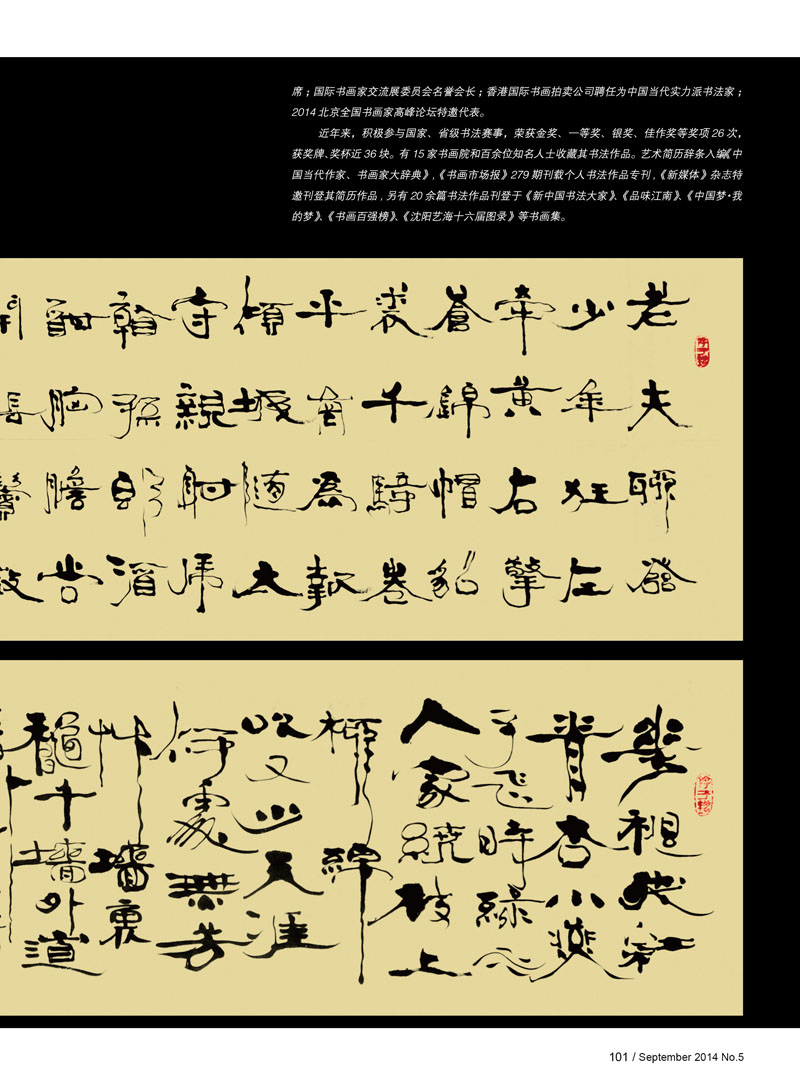 席；国际书画家交流展委员会名誉会长；香港国际书画拍卖公司聘任为中国当代实力派书法家；
2014 北京全国书画家高峰论坛特邀代表。
近年来，积极参与国家、省级书法赛事，荣获金奖、一等奖、银奖、佳作奖等奖项 26 次，
获奖牌、奖杯近 36 块。有 15 家书画院和百余位知名人士收藏其书法作品。艺术简历辞条入编《中
国当代作家、书画家大辞典》，《书画市场报》279 期刊载个人书法作品专刊，《新媒体》杂志特
邀刊登其简历作品，另有 20 余篇书法作品刊登于《新中国书法大家》、《品味江南》、《中国梦·我
的梦》、《书画百强榜》、《沈阳艺海十六届图录》等书画集。
老夫聊發
少年狂左
牽黃右擎
蒼錦帽貂
裘千騎卷
平崗為報
傾城隨太
守親射虎
孫郎酒
酣胸膽尚
花褪殘紅
青杏小燕
子飛時綠水
人家繞枝上
柳綿
吹又少天涯
何處無芳
艸牆裏
千牆外道
101 / September 2014 No.5